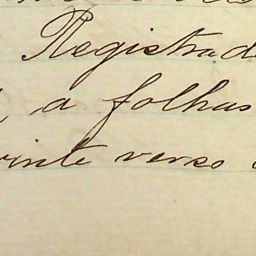 Registrad
a folhas
vinte verso